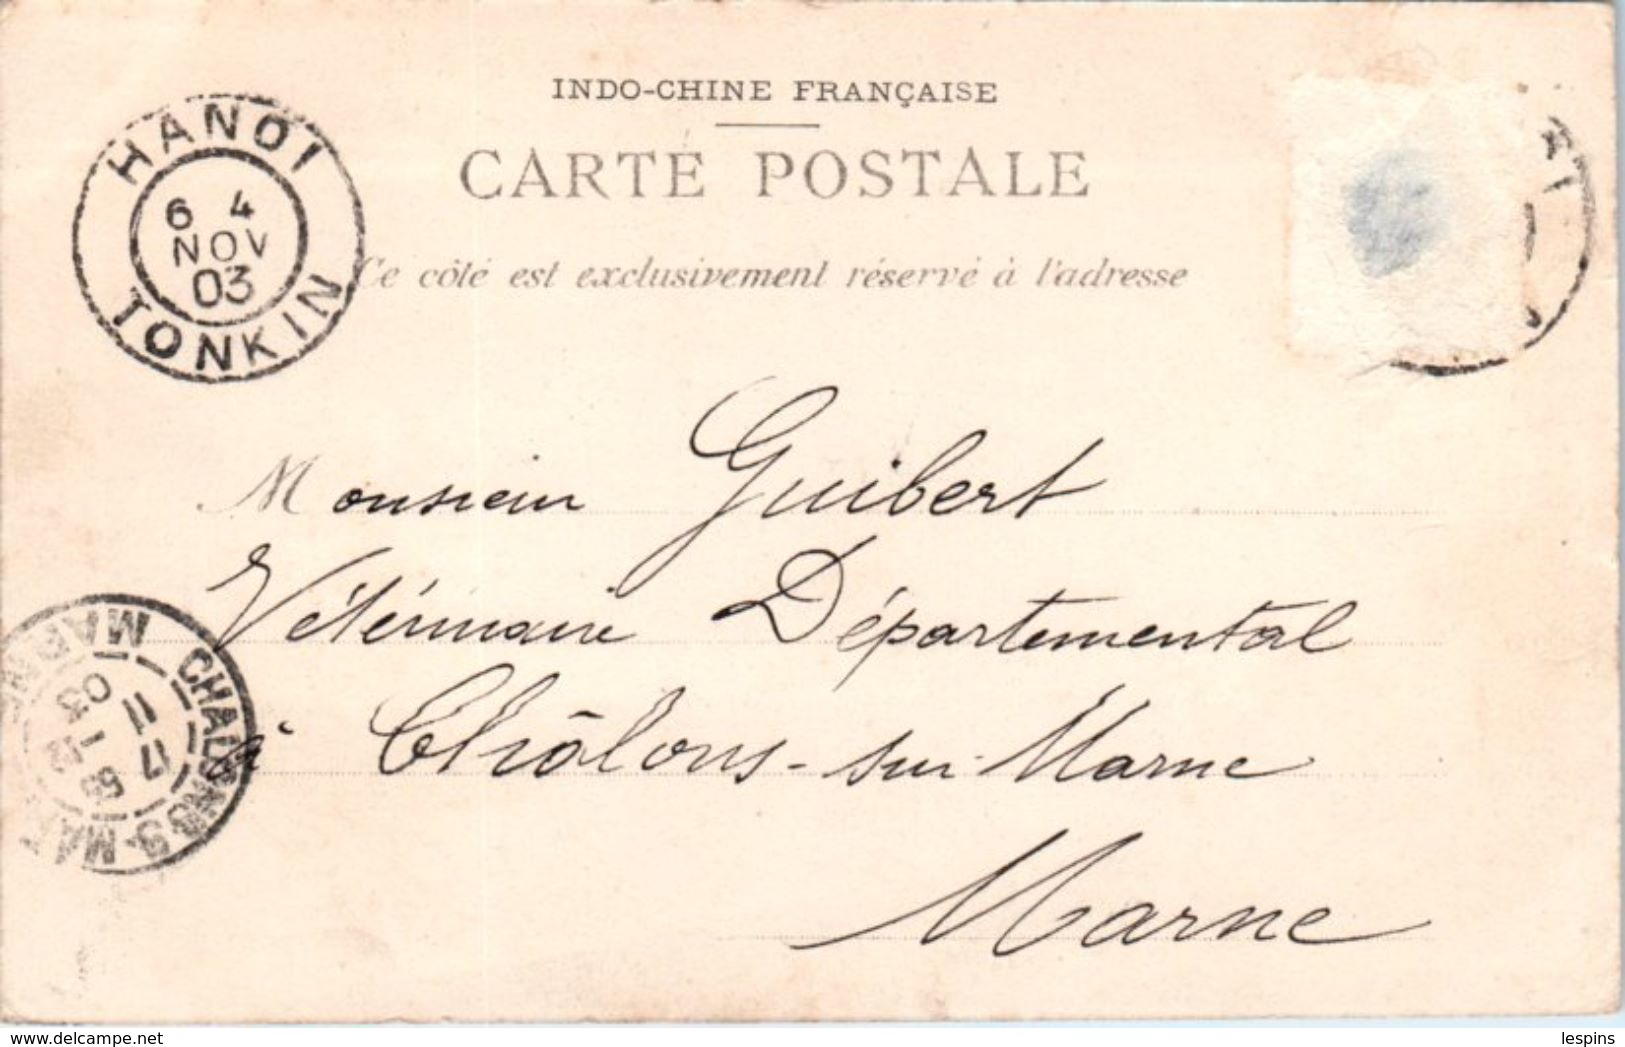 INDO-CHINE FRANÇAISE
CARTE POSTALE
Ce côté est exclusivement réservé à l'adresse
HANOI
6 4
NOV
03
TONKIN
Monsieur Guibert
Vétérinaire Départemental
à Châlons-sur Marne
Marne
CHALONS-S-MAR
MARNE
17
11
03
www.delcampe.net
lespins